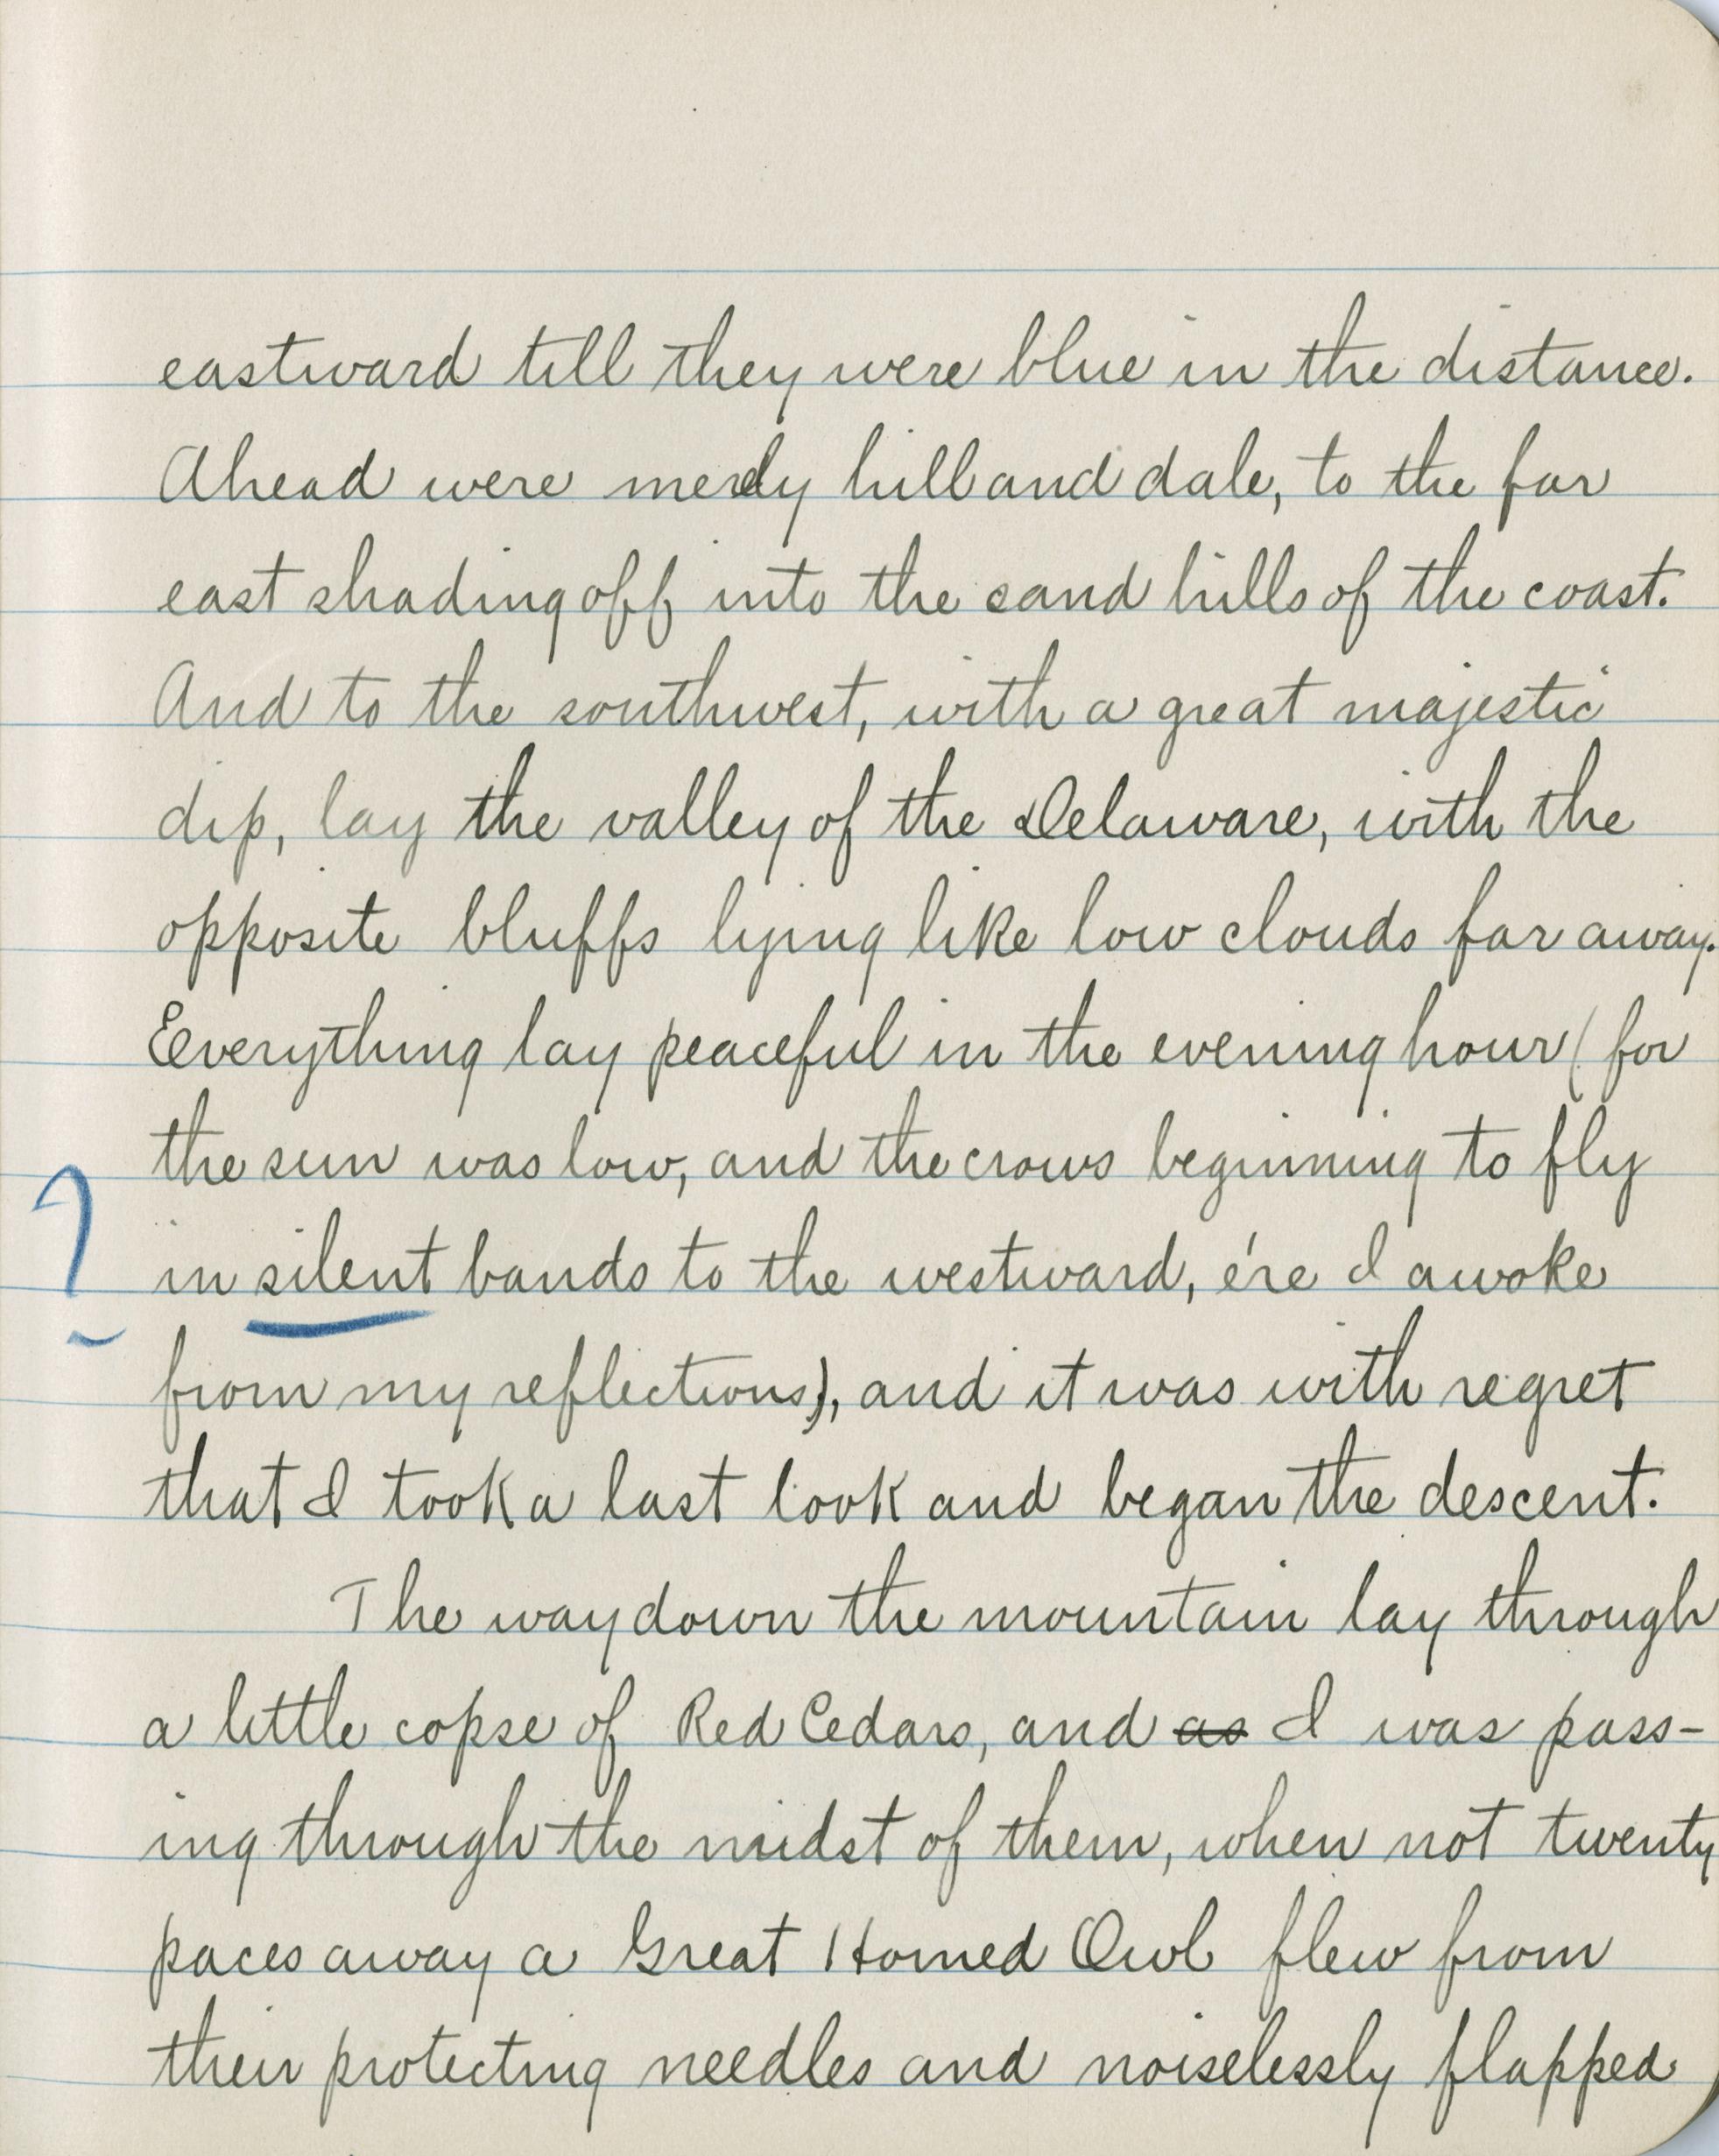 eastward till they were blue in the distance.
Ahead were merely hill and dale, to the far
east shading off into the sand hills of the coast.
And to the southwest, with a great majestic
dip, lay the valley of the Delaware, with the
opposite bluffs lying like low clouds far away.
Everything lay peaceful in the evening hour (for
the sun was low, and the crows beginning to fly
? in silent bands to the westward, e're I awoke
from my reflections), and it was with regret
that I took a last look and began the descent.
The way down the mountain lay through
a little copse of Red Cedars, and as I was pass-
ing through the midst of them, when not twenty
paces away a Great Horned Owl flew from
their protecting needles and noiselessly flapped